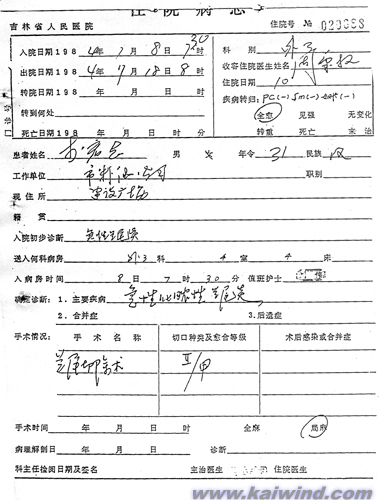 住院病志
吉林省人民医院 住院号 №
入院日期1984年7月8日7时30 科别 外三
出院日期1984年7月18日8时 收容住院医生姓名
转院日期198 年 月 日 时 住院日期 10
转到何处 疾病转归: PC(-) Sm(-)
死亡日期198 年 月 日 时 分 全愈 见强 无变化
门诊号 转重 死亡 未治
患者姓名 男 女 年令 31 民族 汉
工作单位 职别
现住所 建设广场
籍贯
入院初步诊断 急性阑尾炎
送入何科病房 外3科 4室 4床
入病房时间 8日7时30分 值班护士
确定诊断: 1. 主要疾病 急性化脓性阑尾炎
2. 合并症 3. 后遗症
手术情况: 手术名称 切口种类及愈合等级 术后感染或合并症
阑尾切除术 II/甲
手术时间 年 月 日 时 全麻 局麻
病理解剖日 年 月 日 诊断
科主任检阅日期及签名 主治医生 住院医生
www.kaiwind.com